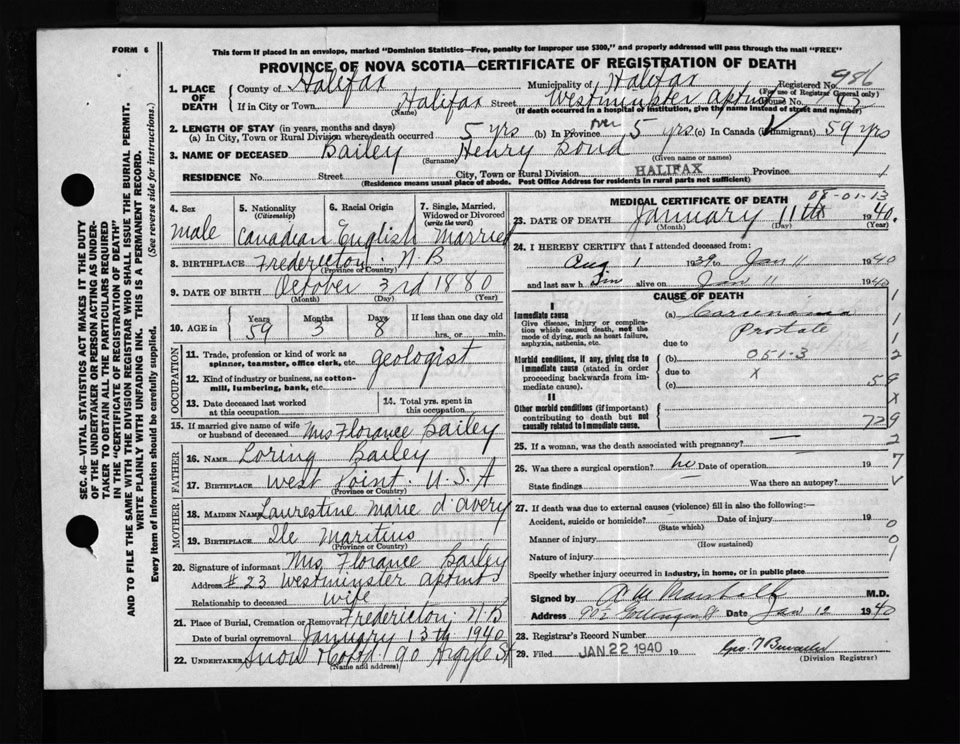 FORM 6
This form if placed in an envelope, marked "Dominion Statistics—Free, penalty for improper use $300," and properly addressed will pass through the mail "FREE"
PROVINCE OF NOVA SCOTIA—CERTIFICATE OF REGISTRATION OF DEATH
SEC. 46—VITAL STATISTICS ACT MAKES IT THE DUTY
OF THE UNDERTAKER OR PERSON ACTING AS UNDER-
TAKER TO OBTAIN ALL THE PARTICULARS REQUIRED
IN THE "CERTIFICATE OF REGISTRATION OF DEATH"
AND TO FILE THE SAME WITH THE DIVISION REGISTRAR WHO SHALL ISSUE THE BURIAL PERMIT.
WRITE PLAINLY WITH UNFADING INK. THIS IS A PERMANENT RECORD.
Every item of information should be carefully supplied. (See reverse side for instructions.)
1. PLACE OF DEATH
County of Halifax Municipality of Halifax Registered No. 986
(For use of Registrar General only)
If in City or Town Halifax Street Westminster aptmt House No.
(Name) (If death occurred in a hospital or institution, give the name instead of street and number)
2. LENGTH OF STAY (in years, months and days)
(a) In City, Town or Rural Division where death occurred 5 yrs (b) In Province over 5 yrs (c) In Canada (if immigrant) 59 yrs
3. NAME OF DECEASED Bailey Henry
(Surname) (Given name or names)
RESIDENCE No. Street City, Town or Rural Division HALIFAX Province 1
(Residence means usual place of abode. Post Office Address for residents in rural parts not sufficient)
4. Sex Male
5. Nationality (Citizenship) Canadian
6. Racial Origin English
7. Single, Married, Widowed or Divorced (write the word) Married
8. BIRTHPLACE Fredericton N B
(Province or Country)
9. DATE OF BIRTH October 3rd 1880
(Month) (Day) (Year)
10. AGE in Years 59 Months 3 Days 8 If less than one day old hrs. or min.
OCCUPATION
11. Trade, profession or kind of work as spinner, teamster, office clerk, etc. geologist
12. Kind of industry or business, as cotton-mill, lumbering, bank, etc.
13. Date deceased last worked at this occupation
14. Total yrs. spent in this occupation
15. If married give name of wife or husband of deceased Mrs Florance Bailey
FATHER
16. NAME Loring Bailey
17. BIRTHPLACE West Point U.S.A
(Province or Country)
MOTHER
18. MAIDEN NAME Laurestine Marie d'avery
19. BIRTHPLACE Ile Maritius
(Province or Country)
20. Signature of informant Mrs Florance Bailey
Address #23 Westminster aptmts
Relationship to deceased Wife
21. Place of Burial, Cremation or Removal Fredericton, N B
Date of burial or removal January 13th 1940
22. UNDERTAKER Snow 90 Argyle St
(Name and address)
MEDICAL CERTIFICATE OF DEATH
08-01-13
23. DATE OF DEATH January 11th 1940.
(Month) (Day) (Year)
24. I HEREBY CERTIFY that I attended deceased from:
Aug 1 1939 to Jan 11 1940
and last saw him alive on Jan 11 1940
CAUSE OF DEATH
I
Immediate cause
Give disease, injury or complication which caused death, not the mode of dying, such as heart failure, asphyxia, asthenia, etc.
(a) Carcinoma
Prostate
due to
Morbid conditions, if any, giving rise to immediate cause (stated in order proceeding backwards from immediate cause).
(b) 051-3
due to x
(c)
II
Other morbid conditions (if important) contributing to death but not causally related to immediate cause.
1
1
1
2
59
x
729
2
7
0
0
1
25. If a woman, was the death associated with pregnancy? —
26. Was there a surgical operation? no Date of operation 19
State findings Was there an autopsy?
27. If death was due to external causes (violence) fill in also the following:—
Accident, suicide or homicide? Date of injury 19
(State which)
Manner of injury
(How sustained)
Nature of injury
Specify whether injury occurred in industry, in home, or in public place
Signed by A M Marshall M.D.
Address Date Jan 12 1940
28. Registrar's Record Number
29. Filed JAN 22 1940 19 Geo.
(Division Registrar)